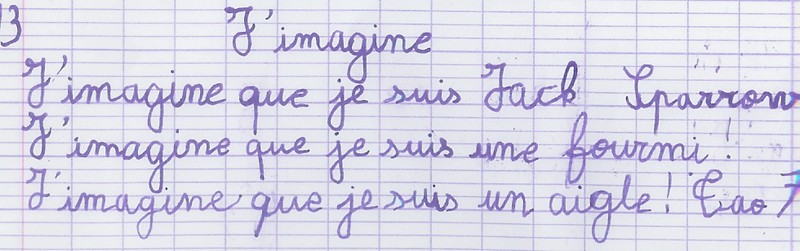 3 J'imagine
J'imagine que je suis Jack Sparrow
J'imagine que je suis une fourmi !
J'imagine que je suis un aigle ! Tao 7